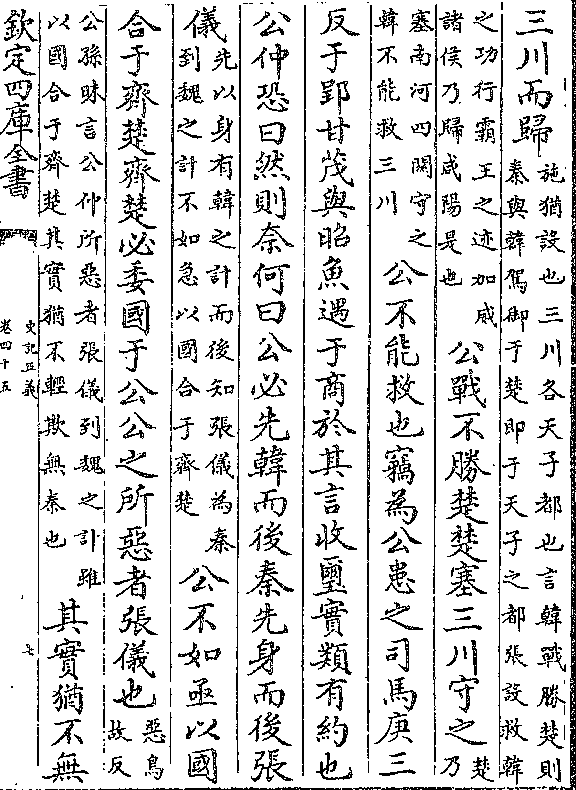 三川而歸施猶設也三川各天子都也言韓戰勝楚則
秦與韓駕御于楚即于天子之都張設救韓
之功行霸王之迹加威
諸侯乃歸咸陽是也
公戰不勝楚楚塞三川守之楚
乃
塞南河四關守之
韓不能救三川
公不能救也竊為公患之司馬庚三
反于郢甘茂與昭魚遇于商於其言收璽實類有約也
公仲恐曰然則奈何曰公必先韓而後秦先身而後張
儀先以身有韓之計而後知張儀為秦
到魏之計不如急以國合于齊楚
公不如亟以國
合于齊楚齊楚必委國于公公之所惡者張儀也惡烏
故反
公孫昧言公仲所惡者張儀到魏之計雖
以國合于齊楚其實猶不輕欺無秦也
其實猶不無
欽定四庫全書
史記正義
卷四十五
七